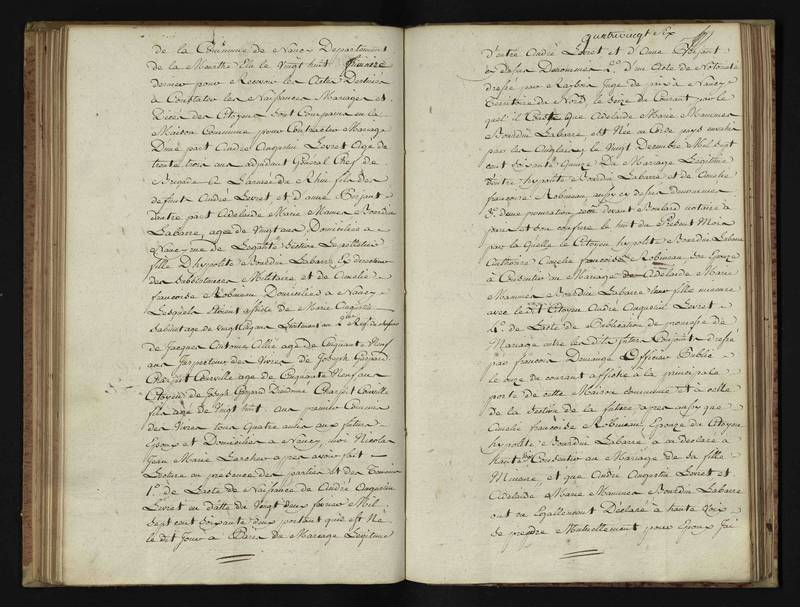 de la Commune de Nancy Departement
de la Meurthe Elu le Vingt huit frimaire
dernier pour Recevoir les Actes Destinés
à Constater les Naissances Mariages et
Décès des Citoyens Sont Comparus en la
Maison Commune pour Contracter Mariage
D'une part André Augustin Levret age de
trente trois ans adjudant Général Chef de
Brigade à L'armée du Rhin fils de
defunt André Levret et d'anne
d'autre part Adelaide Marie Mames Bourdin
Labarre, age de Vingt ans Domiciliée a
Nancy rue de Section Lepelletier
fille D'hypolite Bourdin Labarre Ex directeur
des Militaire et de Amelie
francoise Robineau Domiciliés a Nancy
Lesquels étoient assistés de Marie Augustin
age de Vingt ans Lieutenant au
de Jacques Antoine age de Cinquante Neuf
ans Inspecteur des Vivres de Joseph Gaspard
Charpit Courville age de Cinquante Neuf ans
Citoyen de Joseph Gaspard Dieudoné Charpit Courville
fils age de Vingt huit ans premier Commis
des Vivres tous quatre amis aux futurs
Epoux et Domiciliés a Nancy, moi Nicolas
Jean Marie Larcher apres avoir fait
Lecture en presence des parties et des Temoins
1.° de L'acte de Naissance de André Augustin
Levret en datte du Vingt deux fevrier Mil
Sept cent Soixante deux portant qu'il est Né
le dit Jour a Paris du Mariage Légitime
quatrevingt Six
d'entre André Levret et d'Anne
cy dessus Denommés 2.° D'un Acte de Notorieté
dressé par Juge de paix a Nancy
Territoire du Nord le Seize du Courant par le
quel il Conste que Adelaide Marie Mammes
Bourdin Labarre est Née en Corse pays envahi
par les Anglais, le Vingt Decembre Mil Sept
cent Soixante Quinze Du Mariage Légitime
d'entre hypolite Bourdin Labarre et de Amelie
francoise Robineau aussy cy dessus denommés
3.° d'une procuration devant Boulard notaire a
paris et son confrere le huit du Présent Mois
par la quelle le Citoyen hypolite Bourdin Labarre
Authorise Amelie francoise Robineau Son Epouse
à Consentir au Mariage de Adelaide Marie
Mammes Bourdin Labarre leur fille mineure
avec le dit Citoyen André Augustin Levret
4.° de L'acte de Publication de promesse de
Mariage entre les Dits futurs Conjoints dressé
par francois Officier Public
le onze du courant affiché a la principale
porte de cette Maison commune et à celle
de la Section de la future apres aussy que
Amelie francoise Robineau Epouze du Citoyen
hypolite Bourdin Labarre a eu declaré a
haute Voix Consentir au Mariage de Sa fille
Mineure, et que André Augustin Levret et
Adelaide Marie Mammes Bourdin Labarre
ont eu Egallement Declaré a haute Voix
Se prendre Mutuellement pour Epoux Jai